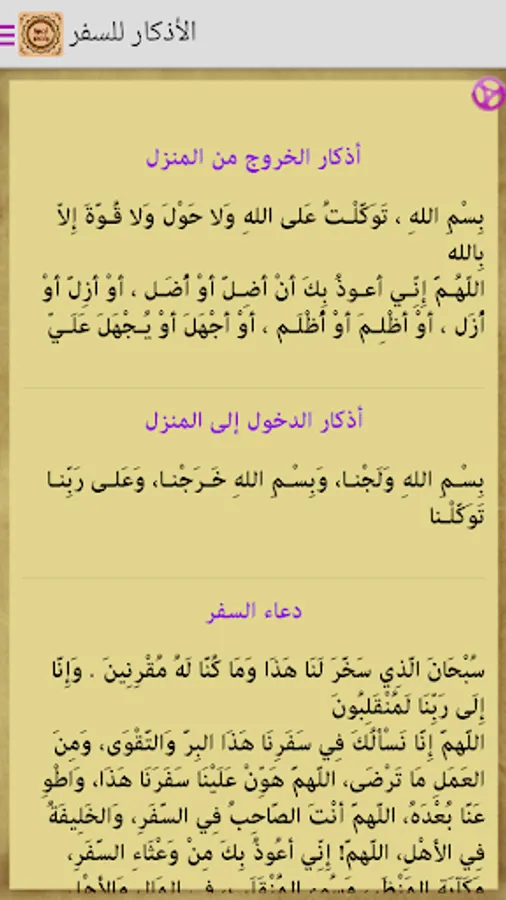 الأذكار للسفر
أذكار الخروج من المنزل
بِسْمِ اللهِ ، تَوَكَّلْـتُ عَلى اللهِ وَلا حَوْلَ وَلا قُـوَّةَ إِلاّ
بِالله
اللّهُـمَّ إِنِّـي أعـوذُ بِكَ أنْ أضِـلَّ أوْ أُضَـل ، أوْ أزِلَّ أوْ
أُزَل ، أوْ أظْلِـمَ أوْ أُظْلَـم ، أوْ أجْهَلَ أوْ يُـجْهَلَ عَلَـيّ
أذكار الدخول إلى المنزل
بِسْـمِ اللهِ وَلَجْنـا، وَبِسْـمِ اللهِ خَـرَجْنـا، وَعَلـى رَبِّنـا
تَوَكّلْـنا
دعاء السفر
سُبْحَانَ الَّذِي سَخَّرَ لَنَا هَذَا وَمَا كُنَّا لَهُ مُقْرِنِينَ . وَإِنَّا
إِلَى رَبِّنَا لَمُنْقَلِبُونَ
اللّهمّ إِنَّا نَسْأَلُكَ فِي سَفَرِنَا هَذَا البِرَّ وَالتَّقْوَى، وَمِنَ
العَمَلِ مَا تَرْضَى، اللّهمّ هَوِّنْ عَلَيْنَا سَفَرَنَا هَذَا، وَاطْوِ
عَنَّا بُعْدَهُ، اللّهمّ أَنْتَ الصَّاحِبُ فِي السَّفَرِ، وَالخَلِيفَةُ
فِي الأَهْلِ، اللّهمّ! إِنِّي أَعُوذُ بِكَ مِنْ وَعْثَاءِ السَّفَرِ،
وَكَآبَةِ المَنْظَرِ، وَسُوءِ المُنْقَلَبِ، فِي المَالِ وَالأَهْلِ